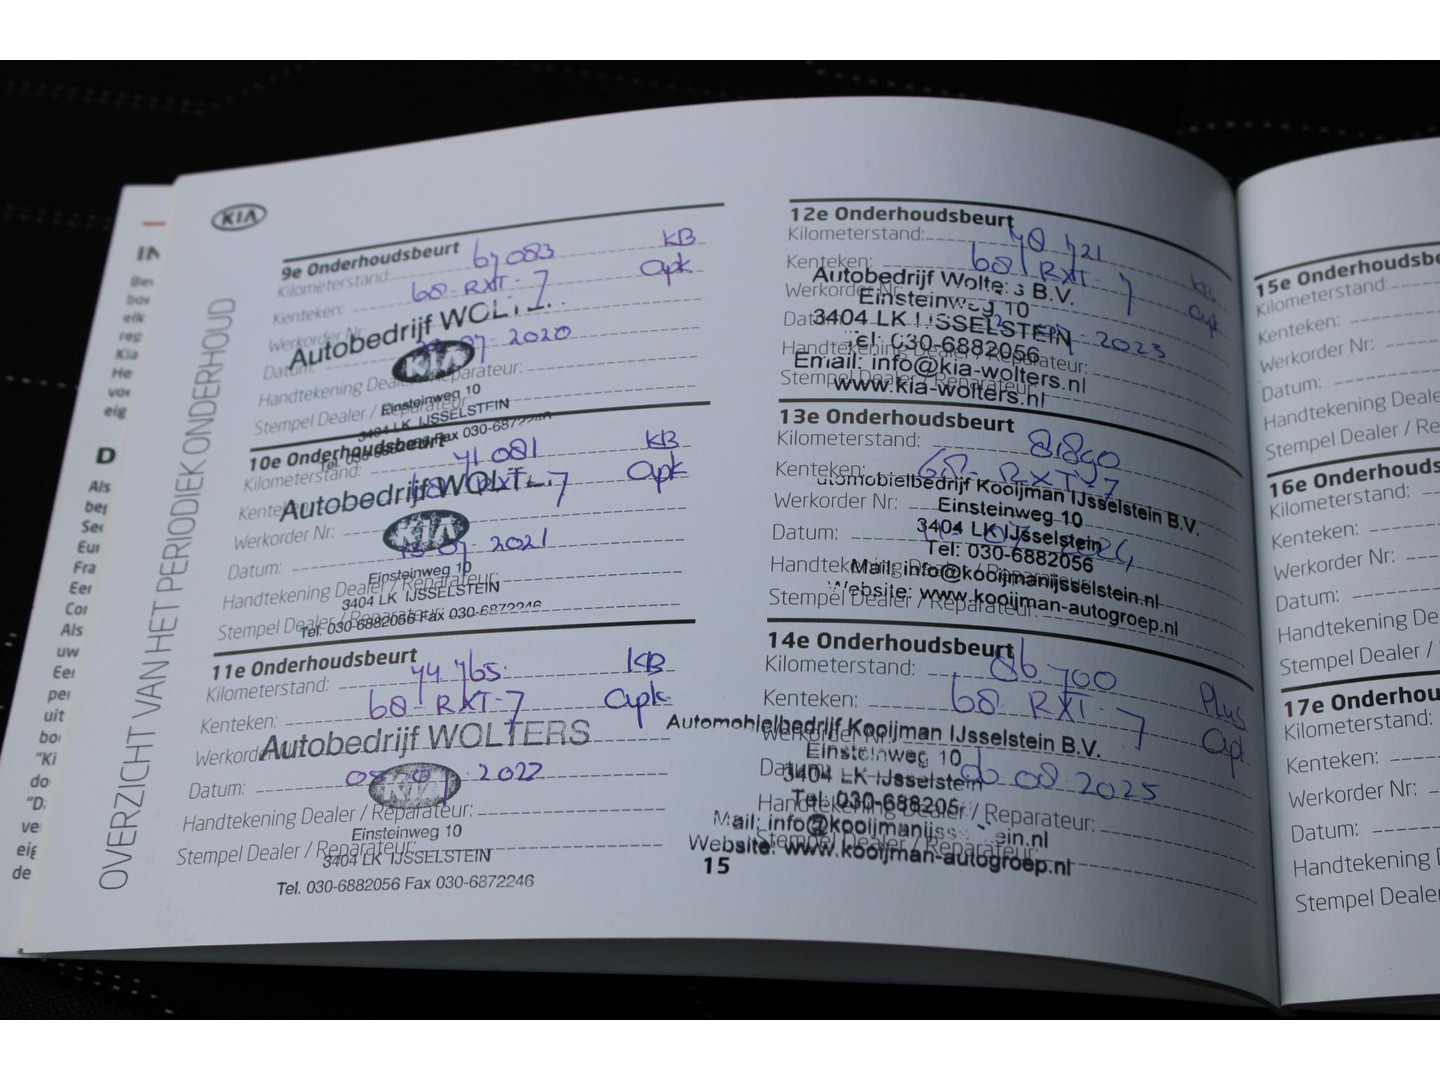 KIA
OVERZICHT VAN HET PERIODIEK ONDERHOUD
9e Onderhoudsbeurt
Kilometerstand: 67083 KB
Kenteken: 68-RXT-7 apk
Werkorder Nr:
Autobedrijf WOLT
Datum: 07 2020
KIA
Handtekening Dealer / Reparateur:
Einsteinweg 10
Stempel Dealer / Reparateur:
3404 LK IJSSELSTEIN
10e Onderhoudsbeurt
Kilometerstand: 71081 KB
Kenteken: 68-RXT-7 apk
Autobedrijf WOLT
Werkorder Nr:
KIA
Datum: 13 07 2021
Einsteinweg 10
Handtekening Dealer / Reparateur:
3404 LK IJSSELSTEIN
Stempel Dealer / Reparateur:
Tel. 030-6882056 Fax 030-6872246
11e Onderhoudsbeurt
Kilometerstand: 74765 KB
Kenteken: 68-RXT-7 apk
Autobedrijf WOLTERS
Datum: 2022
KIA
Handtekening Dealer / Reparateur:
Einsteinweg 10
Stempel Dealer / Reparateur:
3404 LK IJSSELSTEIN
Tel. 030-6882056 Fax 030-6872246
12e Onderhoudsbeurt
Kilometerstand: 78721
Kenteken: 68 RXT-7 KB
Autobedrijf Wolters B.V.
Werkorder Nr: apk
Einsteinweg 10
Datum: 2023
3404 LK IJSSELSTEIN
Tel: 030-6882056
Handtekening Dealer / Reparateur:
Email: info@kia-wolters.nl
Stempel Dealer / Reparateur:
www.kia-wolters.nl
13e Onderhoudsbeurt
Kilometerstand: 81890
Kenteken: 68-RXT-7
utomobielbedrijf Kooijman IJsselstein B.V.
Werkorder Nr:
Einsteinweg 10
3404 LK IJsselstein
Datum: 07 2024
Tel: 030-6882056
Handtekening Dealer / Reparateur:
Mail: info@kooijmanijsselstein.nl
Website: www.kooijman-autogroep.nl
Stempel Dealer / Reparateur:
14e Onderhoudsbeurt
Kilometerstand: 86700 Plus
Kenteken: 68 RXT-7 apk
Automobielbedrijf Kooijman IJsselstein B.V.
Werkorder Nr:
Einsteinweg 10
Datum: 06 08 2025
3404 LK IJsselstein
Tel: 030-688205
Handtekening Dealer / Reparateur:
Mail: info@kooijmanijsselstein.nl
Stempel Dealer / Reparateur:
Website: www.kooijman-autogroep.nl
15
15e Onderhoudsbe
Kilometerstand:
Kenteken:
Werkorder Nr:
Datum:
Handtekening Deale
Stempel Dealer / Re
16e Onderhouds
Kilometerstand:
Kenteken:
Werkorder Nr:
Datum:
Handtekening De
Stempel Dealer /
17e Onderhou
Kilometerstand:
Kenteken:
Werkorder Nr:
Datum:
Handtekening
Stempel Dealer